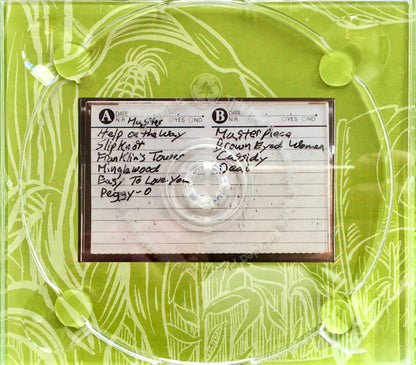 A DATE
N.R. ○YES ○NO
Master
Help on the Way
Slipknot
Franklin's Tower
Minglewood
Easy To Love You
Peggy-O
B DATE
N.R. ○YES ○NO
Masterpiece
Brown Eyed Women
Cassidy
Deal